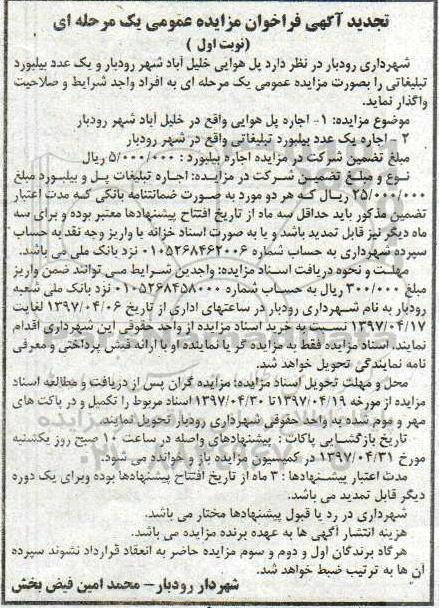 تجدید آگهی فراخوان مزایده عمومی یک مرحله ای
(نوبت اول)
شهرداری رودبار در نظر دارد پل هوایی خلیل آباد شهر رودبار و یک عدد بیلبورد
تبلیغاتی را بصورت مزایده عمومی یک مرحله ای به افراد واجد شرایط و صلاحیت
واگذار نماید.
موضوع مزایده: ۱- اجاره پل هوایی واقع در خلیل آباد شهر رودبار
۲ - اجاره یک عدد بیلبورد تبلیغاتی واقع در شهر رودبار
مبلغ تضمین شرکت در مزایده اجاره بیلبورد: ۵/۰۰۰/۰۰۰ ریال
نوع و مبلغ تضمین شرکت در مزایده: اجاره تبلیغات پل و بیلبورد مبلغ
۲۵/۰۰۰/۰۰۰ ریال که هر دو مورد به صورت ضمانتنامه بانکی که مدت اعتبار
تضمین مذکور باید حداقل سه ماه از تاریخ افتتاح پیشنهادها معتبر بوده و برای سه
ماه دیگر نیز قابل تمدید باشد و یا به صورت اسناد خزانه یا واریز وجه نقد به حساب
سپرده شهرداری به حساب شماره ۰۱۰۵۲۶۸۴۶۲۰۰۶ نزد بانک ملی می باشد.
مهلت و نحوه دریافت اسناد مزایده: واجدین شرایط می توانند ضمن واریز
مبلغ ۳۰۰/۰۰۰ ریال به حساب شماره ۰۱۰۵۲۶۸۴۵۸۰۰۰ نزد بانک ملی شعبه
رودبار به نام شهرداری رودبار در ساعتهای اداری از تاریخ ۱۳۹۷/۰۴/۰۶ لغایت
۱۳۹۷/۰۴/۱۷ نسبت به خرید اسناد مزایده از واحد حقوقی این شهرداری اقدام
نمایند. اسناد مزایده فقط به مزایده گر یا نماینده او با ارائه فیش پرداختی و معرفی
نامه نمایندگی تحویل خواهد شد.
محل و مهلت تحویل اسناد مزایده: مزایده گران پس از دریافت و مطالعه اسناد
مزایده از مورخه ۱۳۹۷/۰۴/۱۹ تا ۱۳۹۷/۰۴/۳۰ اسناد مربوط را تکمیل و در پاکت های
مهر و موم شده به واحد حقوقی شهرداری رودبار تحویل نمایند.
تاریخ بازگشایی پاکات: پیشنهادهای واصله در ساعت ۱۰ صبح روز یکشنبه
مورخ ۱۳۹۷/۰۴/۳۱ در کمیسیون مزایده باز و خوانده می شود.
مدت اعتبار پیشنهادها: ۳ ماه از تاریخ افتتاح پیشنهادها بوده وبرای یک دوره
دیگر قابل تمدید می باشد.
شهرداری در رد یا قبول پیشنهادها مختار می باشد.
هزینه انتشار آگهی ها به عهده برنده مزایده می باشد.
هرگاه برندگان اول و دوم و سوم مزایده حاضر به انعقاد قرارداد نشوند سپرده
آن ها به ترتیب ضبط خواهد شد.
شهردار رودبار- محمد امین فیض بخش